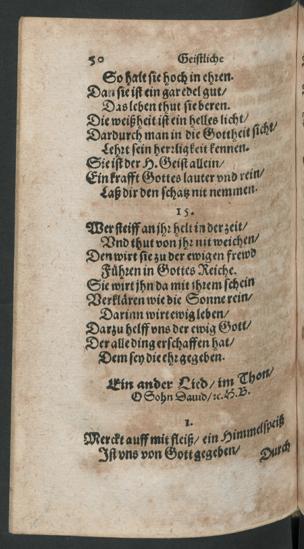 50 Geistliche
So halt sie hoch in ehren.
Dan sie ist ein gar edel gut/
Das leben thut sie beren.
Die weißheit ist ein helles licht/
Dardurch man in die Gottheit sicht/
Lehrt sein herrligkeit kennen.
Sie ist der H. Geist allein/
Ein krafft Gottes lauter vnd rein/
Laß dir den schatz nit nemmen.
15.
Wer steiff an jhr helt in der zeit/
Vnd thut von jhr nit weichen/
Den wirt sie zu der ewigen frewd
Führen in Gottes Reiche.
Sie wirt jhn da mit jhrem schein
Verklären wie die Sonne rein/
Darinn wirt ewig leben/
Darzu helff vns der ewig Gott/
Der alle ding erschaffen hat/
Dem sey die ehr gegeben.
Ein ander Lied/ im Thon/
O Sohn Dauid/ ꝛc. H. B.
1.
Merckt auff mit fleiß/ ein Himmelspeiß
Ist vns von Gott gegeben/
Durch